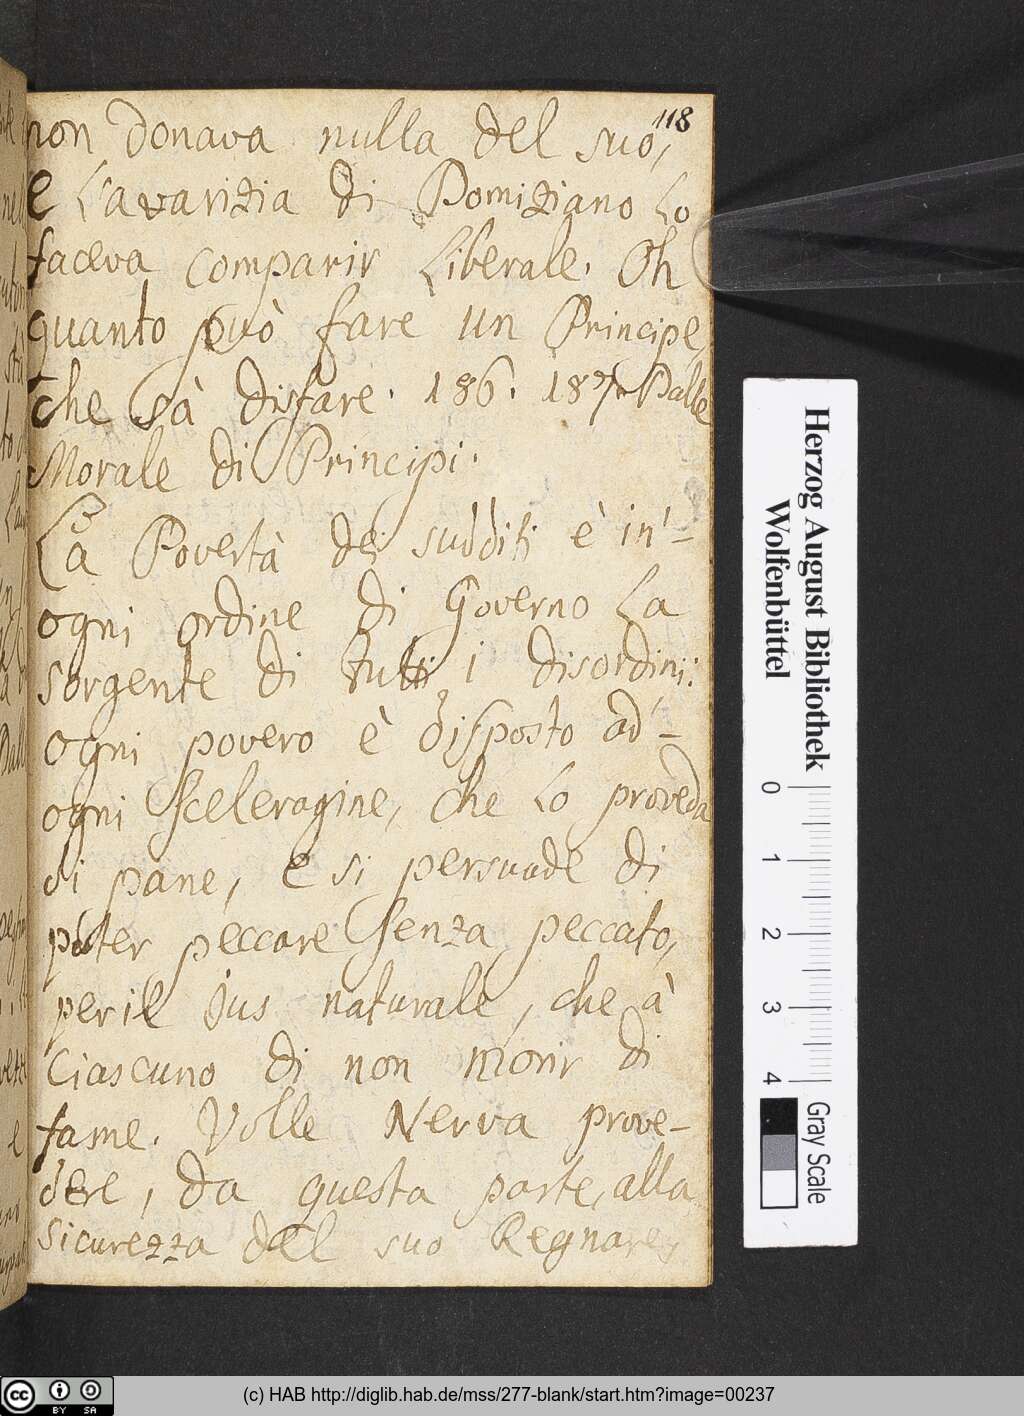 118
non donava nulla del suo,
e L'avarizia di Domiziano Lo
faceva comparir Liberale. Oh
quanto può fare un Principe,
che sà disfare. 186. 187. Dalle
Morale di Principi.
La Povertà dei sudditi è in'-
ogni ordine di Governo La
sorgente di tutti i disordini:
ogni povero è disposto ad'-
ogni sceleragine, che lo proveda
di pane, e si persuade di
poter peccare senza peccato,
per il jus naturale, che à
ciascuno di non morir di
fame. Volle Nerva prove-
dere, da questa parte, alla
sicurezza del suo Regnare,
Herzog August Bibliothek
Wolfenbüttel
0 1 2 3 4
Gray Scale
cc BY SA
(c) HAB http://diglib.hab.de/mss/277-blank/start.htm?image=00237